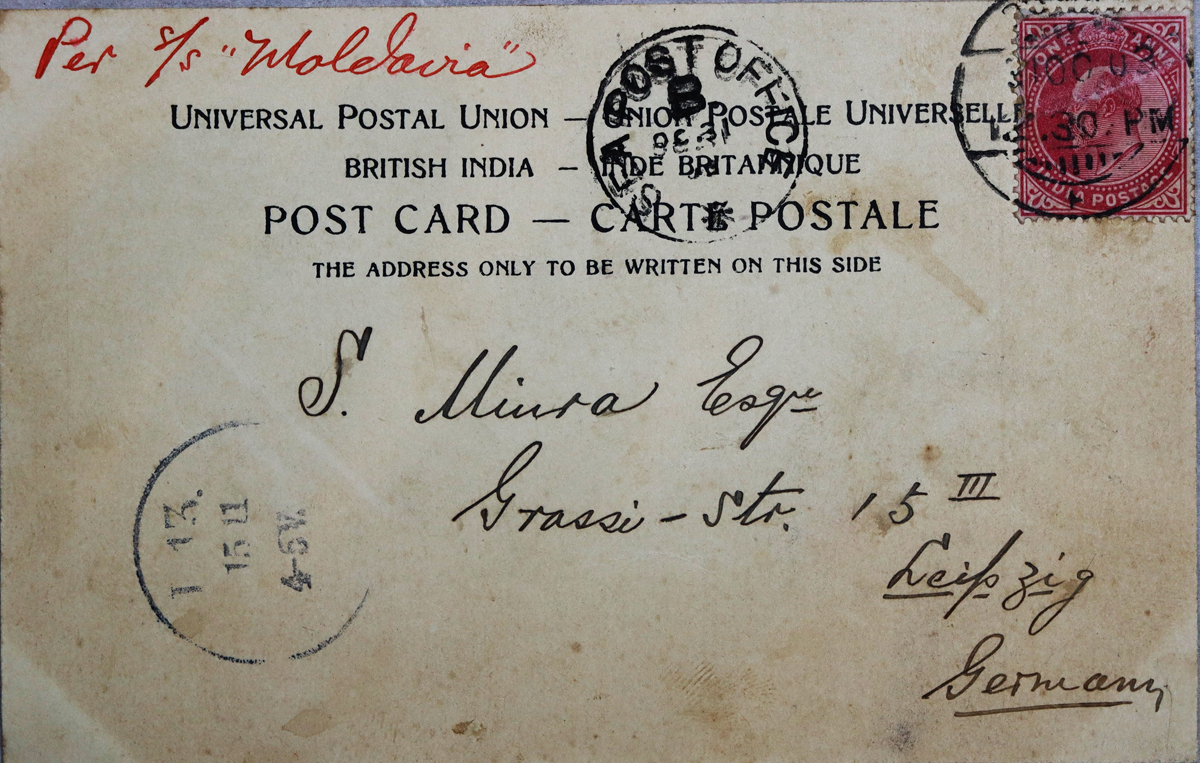 Per s/s "Moldavia"
UNIVERSAL POSTAL UNION — UNION POSTALE UNIVERSELLE
BRITISH INDIA — INDE BRITANNIQUE
POST CARD — CARTE POSTALE
THE ADDRESS ONLY TO BE WRITTEN ON THIS SIDE
SEA POST OFFICE
B
ONE ANNA
30 PM
INDIA POSTAGE
S. Miura Esqre
Grassi-Str. 15 III
Leipzig
Germany
15 11